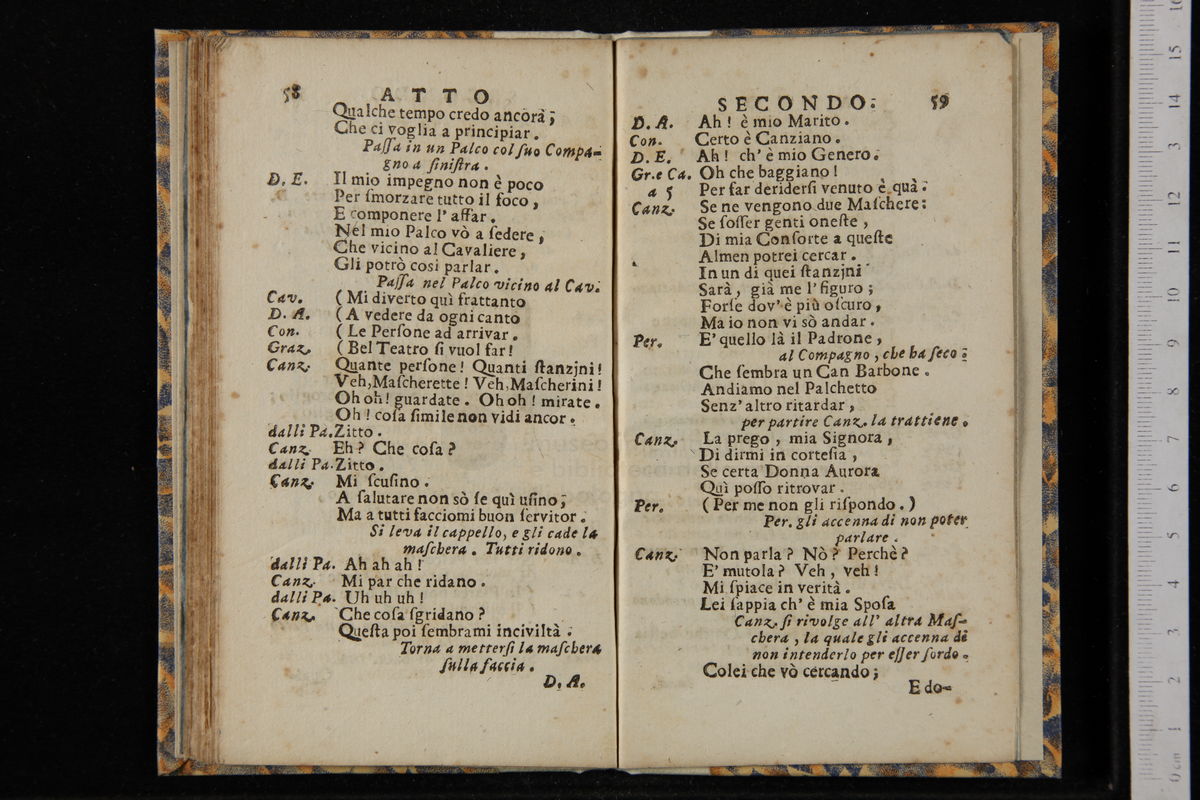 58 ATTO
Qualche tempo credo ancorà;
Che ci voglia a principiar.
Paſſa in un Palco col ſuo Compa-
gno a ſiniſtra.
D. E. Il mio impegno non è poco
Per ſmorzare tutto il foco,
E componere l' affar.
Nel mio Palco vò a ſedere,
Che vicino al Cavaliere,
Gli potrò così parlar.
Paſſa nel Palco vicino al Cav.
Cav. (Mi diverto quì frattanto
D. A. (A vedere da ogni canto
Con. (Le Perſone ad arrivar.
Graz. (Bel Teatro ſi vuol far!
Canz. Quante perſone! Quanti ſtanzjni!
Veh, Maſcherette! Veh, Maſcherini!
Oh oh! guardate. Oh oh! mirate.
Oh! coſa ſimile non vidi ancor.
dalli Pa. Zitto.
Canz. Eh? Che coſa?
dalli Pa. Zitto.
Canz. Mi ſcuſino.
A ſalutare non sò ſe quì uſino;
Ma a tutti facciomi buon ſervitor.
Si leva il cappello, e gli cade la
maſchera. Tutti ridono.
dalli Pa. Ah ah ah!
Canz. Mi par che ridano.
dalli Pa. Uh uh uh!
Canz. Che coſa ſgridano?
Queſta poi ſembrami inciviltà.
Torna a metterſi la maſchera
ſulla faccia.
D. A.
SECONDO. 59
D. A. Ah! è mio Marito.
Con. Certo è Canziano.
D. E. Ah! ch' è mio Genero.
Gr. e Ca. Oh che baggiano!
a 5 Per far deriderſi venuto è quà.
Canz. Se ne vengono due Maſchere:
Se foſſer genti oneſte,
Di mia Conſorte a queſte
Almen potrei cercar.
In un di quei ſtanzjni
Sarà, già me l' figuro;
Forſe dov' è più oſcuro,
Ma io non vi sò andar.
Per. E' quello là il Padrone,
al Compagno, che ha ſeco.
Che ſembra un Can Barbone.
Andiamo nel Palchetto
Senz' altro ritardar,
per partire Canz. la trattiene.
Canz. La prego, mia Signora,
Di dirmi in corteſia,
Se certa Donna Aurora
Quì poſſo ritrovar.
Per. (Per me non gli riſpondo.)
Per. gli accenna di non poter
parlare.
Canz. Non parla? Nò? Perchè?
E' mutola? Veh, veh!
Mi ſpiace in verità.
Lei ſappia ch' è mia Spoſa
Canz. ſi rivolge all' altra Maſ-
chera, la quale gli accenna di
non intenderlo per eſſer ſordo.
Colei che vò cercando;
E do-